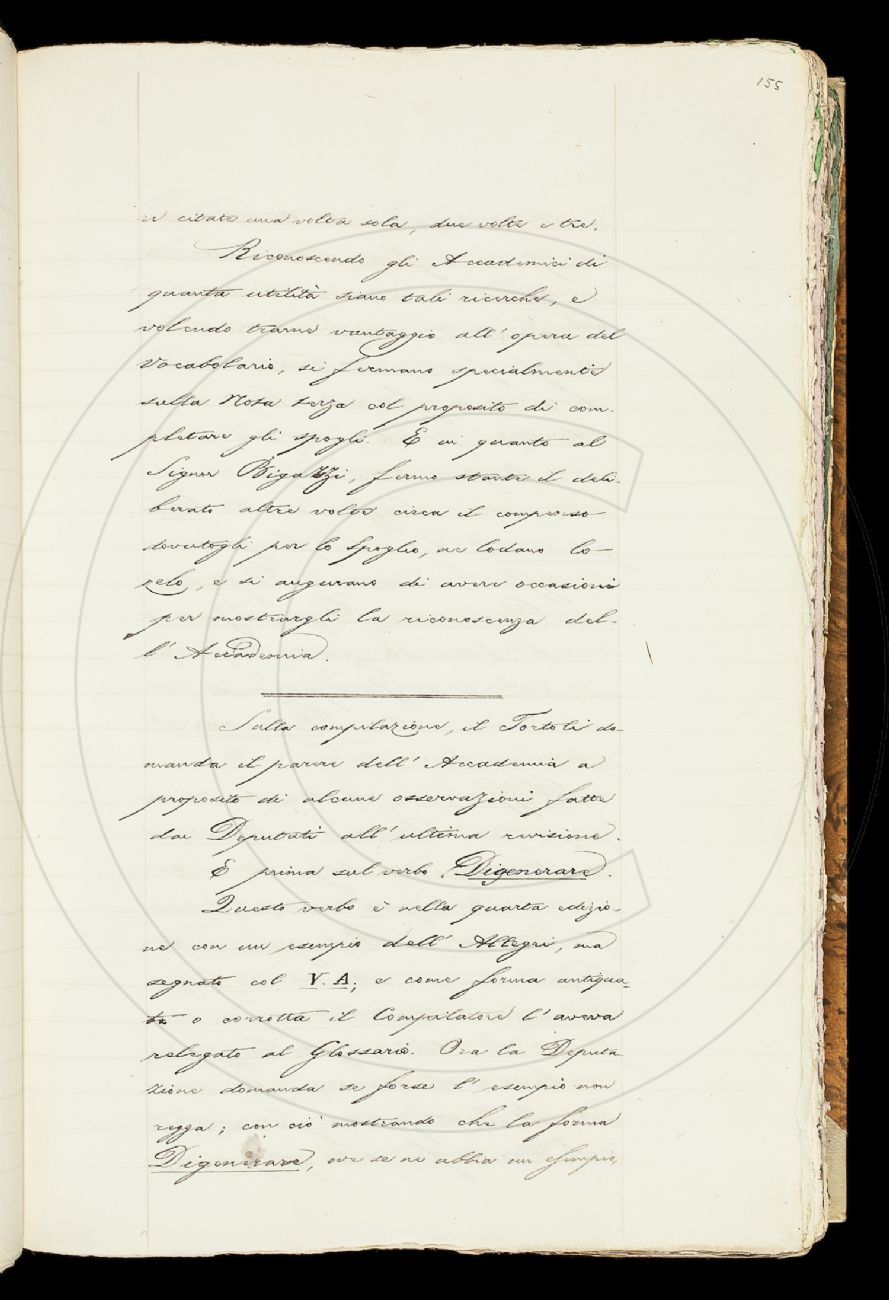 155
re citate una volta sola, due volte e tre.
Riconoscendo gli Accademici di
quanta utilità siano tali ricerche, e
volendo trarne vantaggio all' opera del
Vocabolario, si fermano specialmente
sulla Nota terza col proposito di com-
pletare gli spogli. E in quanto al
Signor Bigazzi, fermo stante il deli-
berato altre volte circa il compenso
dovutogli per lo spoglio, ne lodano lo
zelo, e si augurano di avere occasioni
per mostrargli la riconoscenza del-
l' Accademia.
Sulla compilazione, il Tortoli do-
manda il parere dell' Accademia a
proposito di alcune osservazioni fatte
dai Deputati all' ultima revisione.
E prima sul verbo Digenerare.
Questo verbo è nella quarta edizio-
ne con un esempio dell' Allegri, ma
segnato col V. A; e come forma antiqua-
ta o corrotta il Compilatore l' aveva
relegato al Glossario. Ora la Deputa
zione domanda se forse l' esempio non
regga; con ciò mostrando che la forma
Digenerare, ove se ne abbia un esempio,